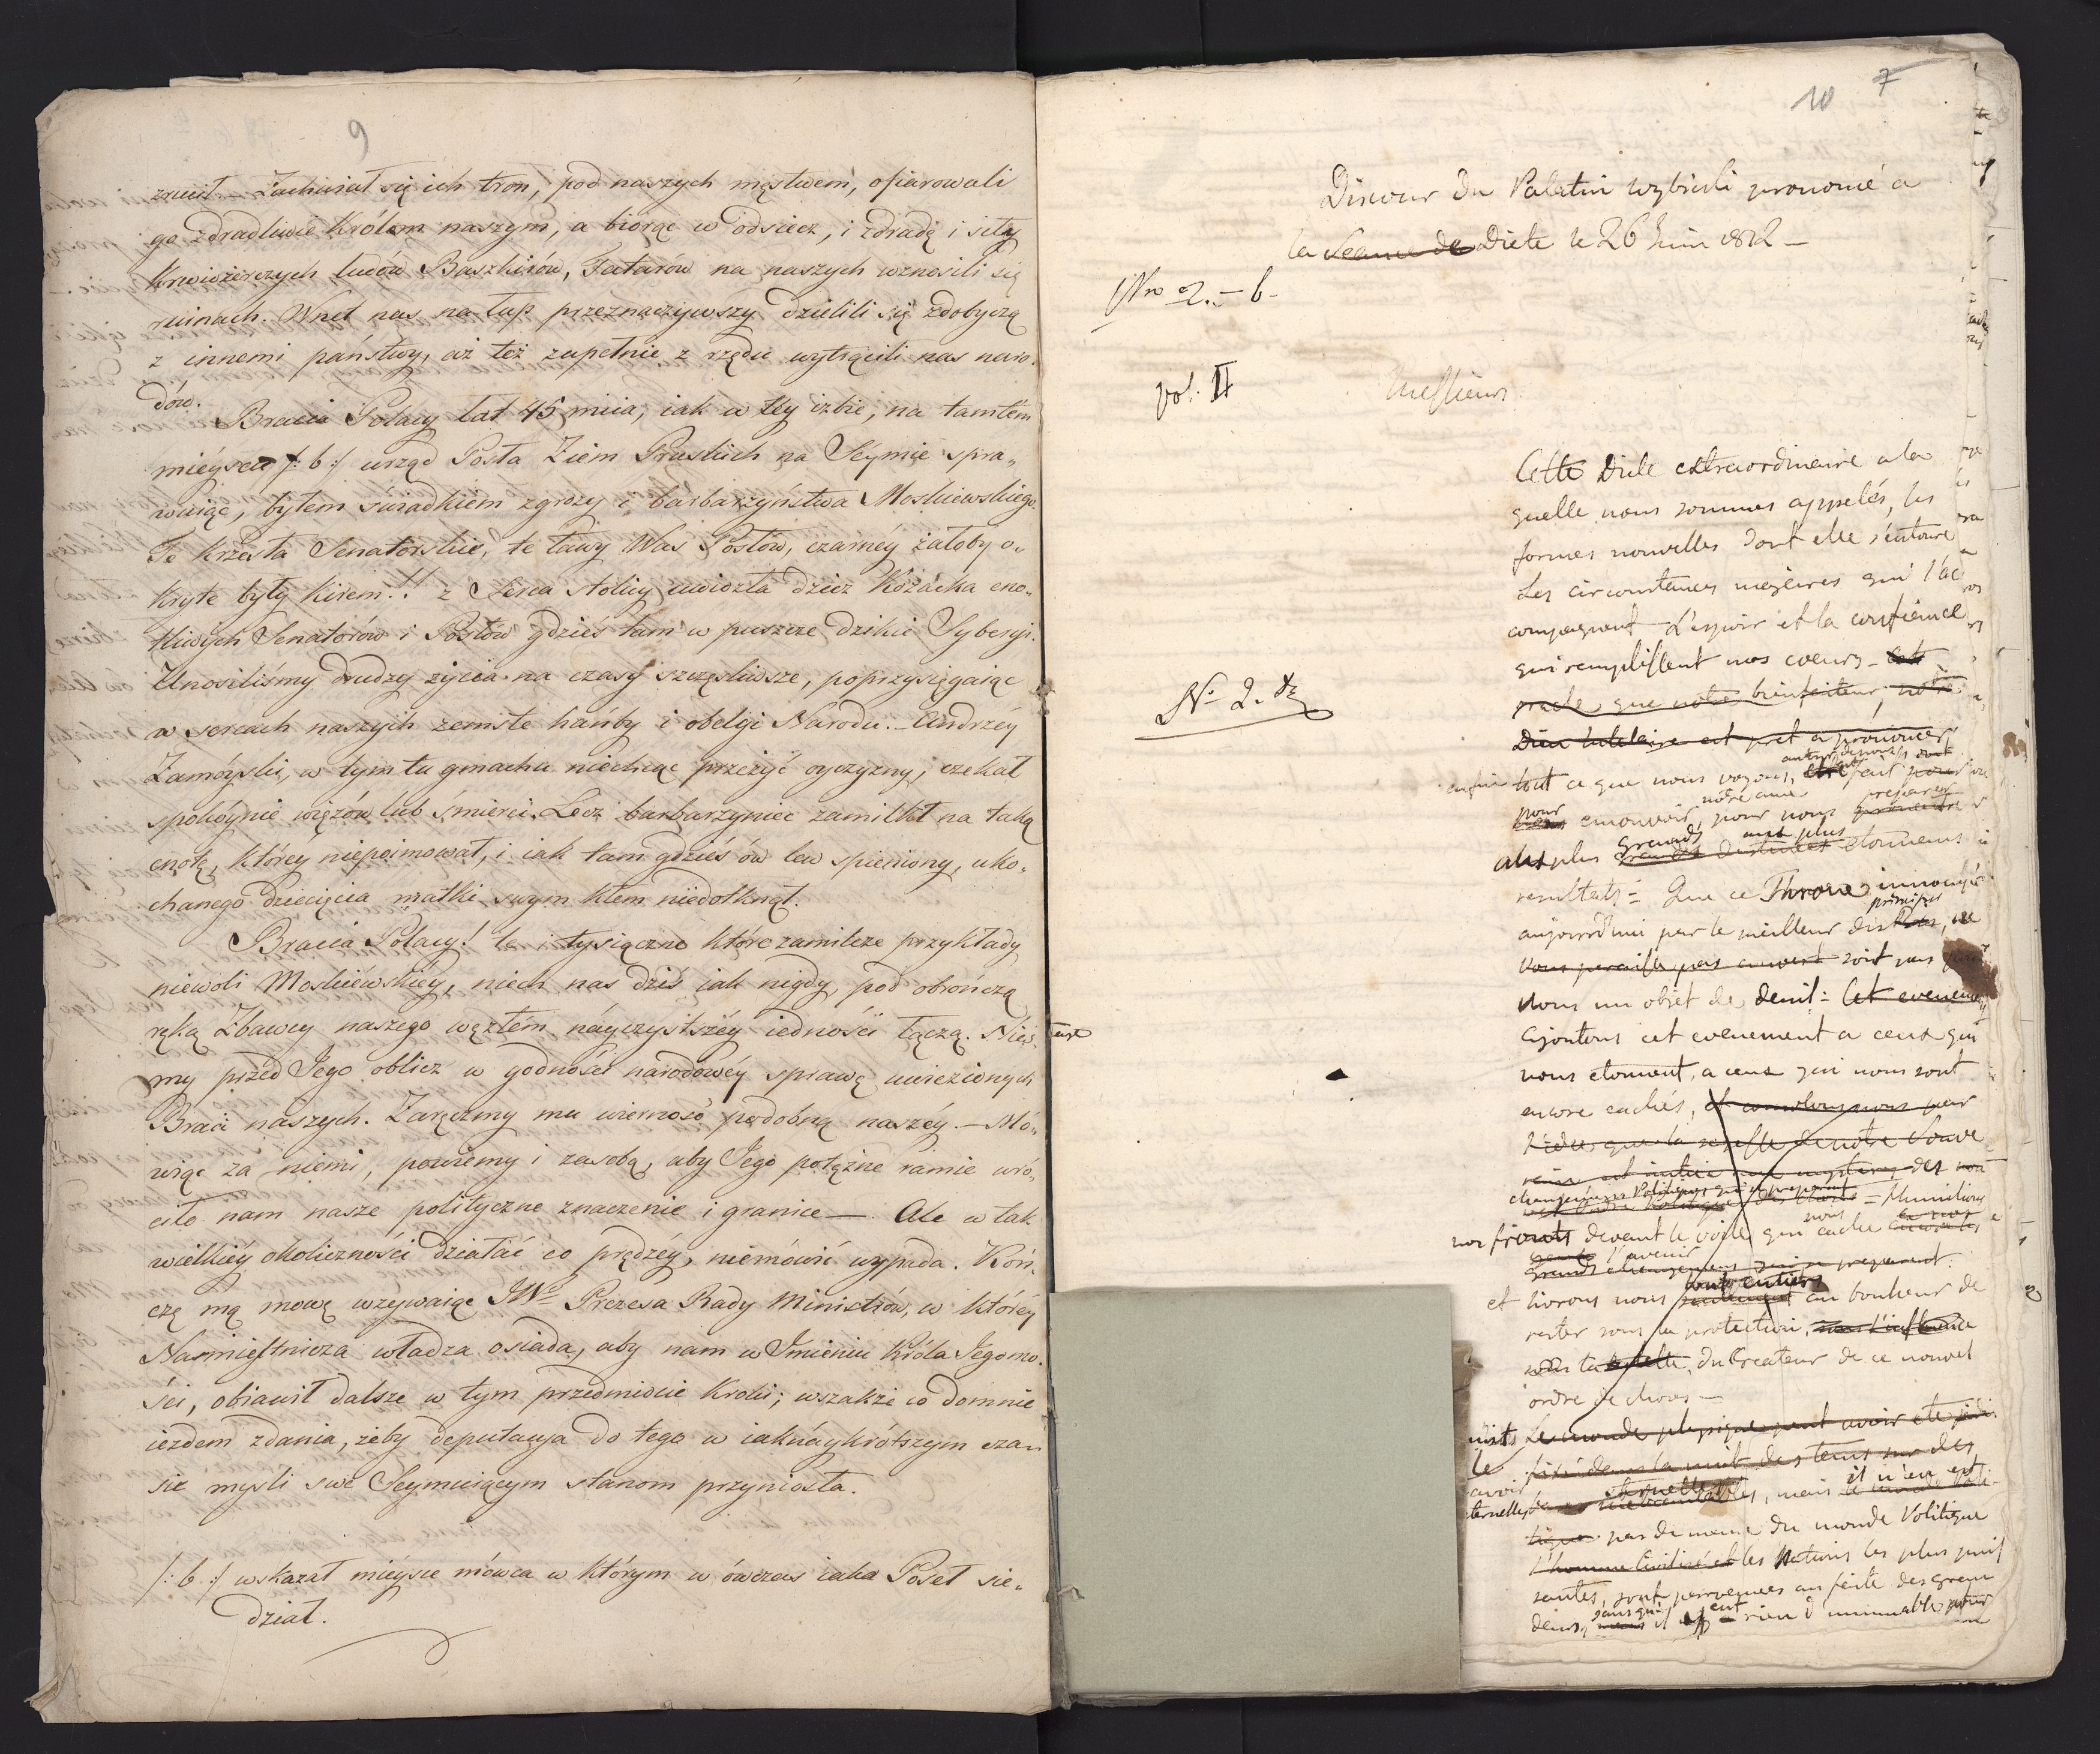 9
zrucił — Zachwiał się ich tron, pod naszych męstwem, ofiarowali
go zdradliwie Królom naszym, a biorąc w odsiecz, i zdradę i siły
Krwiożerczych ludów Baszkirów, Tatarów na naszych wznosili się
ruinach. Wnet nas na łup przeznaczywszy dzielili się zdobyczą
z innemi państwy, aż też zupełnie z rzędu wytrącili nas naro-
dów.
Bracia Polacy lat 45 miia, iak w tey izbie, na tamtém
mieyscu /: b :/ urząd Posła Ziem Pruskich na Seymie spra„
wuiąc, byłem świadkiem zgrozy i barbarzyństwa Moskiewskiego.
Te Krzesła Senatorskie, te ławy Was Posłów, czarnéy żałoby o„
kryte były kirem!! z Serca stolicy uwiozła dzicz Kozacka cno„
tliwych Senatorów i Posłów gdzieś tam w puszcze dzikie Syberyi.
Unosiliśmy drudzy życia na czasy szczęśliwsze, poprzysięgaiąc
w sercach naszych zemstę hańby i obelgi Narodu. — Andrzéy
Zamóyski, w tym tu gmachu niechcąc przeżyć oyczyzny, czekał
spokóynie więzów lub śmierci. Lecz barbarzyniec zamilkł na taką
cnotę, któréy niepoimował, i iak tam gdzieś ów lew spieniony, uko„
chanego dziecięcia matki swym kłem niedotknął.
Bracia Polacy! te i tysiączne które zamilczę przykłady
niewoli Moskiéwskiéy, niech nas dziś iak nigdy, pod obrończą
ręką Zbawcy naszego węzłém náyczystszéy iedności łączą. Nieś-
my przed Jego oblicz w godności narodowéy sprawę uwięzionych
Braci naszych. Zaręczmy mu wierność podobną naszéy. — Mó„
wiąc za niemi, powiemy i za sobą, aby Jego potężne ramie wró„
ciło nam nasze polityczne znaczenie i granice — Ale w tak
wielkiéy okoliczności działać co prędzéy, niemówić wypada. Koń„
czę mą mowę wzywaiąc JWo Prezesa Rady Ministrów, w któréy
Namiestnicza władza osiada, aby nam w Imieniu Króla Jegomo„
ści, obiawił dalsze w tym przedmiocie Kroki; wszakże co do mnie
iezdem zdania, żeby deputacya do tego w iaknáykrótszym cza„
sie myśli swe Seymuiącym stanom przyniosła.
/: b :/ wskazał mieysce mówca w którym w ówczas iako Poseł sie„
dział.
10 7
Discour du Palatin Wybicki prononcé a
la Seance de Diete le 26 Juin 1812 —
Nro 2. — b-
vol. II
Messieurs
No 2.
Cette Diete extraordinaire a la
quelle nous sommes appelés, les
formes nouvelles dont elle s'entoure
Les circonstances majeures qui l'ac
compagnent L'espoir et la confiance
qui remplissent nos coeurs - 
que notre bienfaiteur, notre
Dieu tutelaire est pret a prononcer
enfin tout ce que nous voyons, autour de nous
pour emouvoir notre ame, pour nous preparer
aux plus grands aux plus etonnens
resultats = Que ce Throne inoccupé
aujourd'hui par le meilleur des princes, ne
soit pas pour
nous un objet de deuil = Cet evenement
ajoutons cet evenement a ceux qui
nous etonnent, a ceux qui nous sont
encore cachés, et consolons nous par
l'idée que la sagesse de notre Souve
des
changemens Politiques qui se preparent = Humilions
nos fronts devant le voile qui nous cache
l'avenir
Grands changemens qui se preparent.
et livrons nous tout entiers au bonheur de
rester sous la protection, sous l'influence
sous la tutelle du Createur de ce nouvel
ordre de choses —
Le monde physique peut avoir eté
dans la nuit des tems sur des
eternelles, mais il n'en est
pas de meme du monde Politique
L'homme Civilisé et les Nations les plus puis
santes, sont parvenues au feite des gran
deurs, sans qu'il y eut rien d'immuable pour